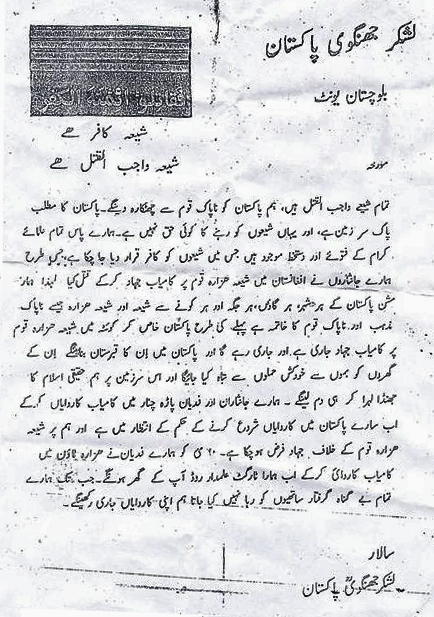 لشکر جھنگوی پاکستان
بلوچستان یونٹ
فقاتلوا ائمة الکفر
شیعہ کافر ھے
شیعہ واجب القتل ھے
مورخہ
تمام شیعے واجب القتل ہیں، ہم پاکستان کو ناپاک قوم سے چھٹکارہ دینگے۔ پاکستان کا مطلب
پاک سر زمین ہے، اور یہاں شیعوں کو رہنے کا کوئی حق نہیں ہے۔ ہمارے پاس تمام علمائے
کرام کے فتوئے اور دستخط موجود ہیں جس میں شیعوں کو کافر قرار دیا جا چکا ہے، جس طرح
ہمارے جانثاروں نے افغانستان میں شیعہ ھزارہ قوم پر کامیاب جہاد کرکے قتل کیا لہٰذا ہمارا
مشن پاکستان کے ہر شہر، ہر گاؤں، ہر جگہ اور ہر کونے سے شیعہ اور شیعہ ھزارہ جیسے ناپاک
مذہب اور ناپاک قوم کا خاتمہ ہے پہلے کی طرح پاکستان خاص کر کوئٹہ میں شیعہ ھزارہ قوم
پر کامیاب جہاد جاری ہے اور جاری رہے گا اور پاکستان میں اِن کا قبرستان بنائینگے اِن کے
گھروں کو بموں سے خودکش حملوں سے تباہ کیا جائیگا اور اس سرزمین پر ہم حقیقی اسلام کا
جھنڈا لہرا کر ہی دم لینگے۔ ہمارے جانثاران اور فدیان پاڑہ چنار میں کامیاب کاروایاں کرکے
اب سارے پاکستان میں کاروایاں شروع کرنے کے حکم کے انتظار میں ہے اور ہم پر شیعہ
ھزارہ قوم کے خلاف جہاد فرض ہو چکا ہے۔ مئی کو ہمارے فدیان نے ھزارہ ٹاؤن میں
کامیاب کاروائی کرکے اب ہمارا ٹارگٹ علمدار روڈ آپ کے گھر ہونگے۔ جب تک ہمارے
تمام بے گناہ گرفتار ساتھیوں کو رہا نہیں کیا جاتا ہم اپنی کاروایاں جاری رکھینگے۔
سالار
لشکر جھنگوی پاکستان